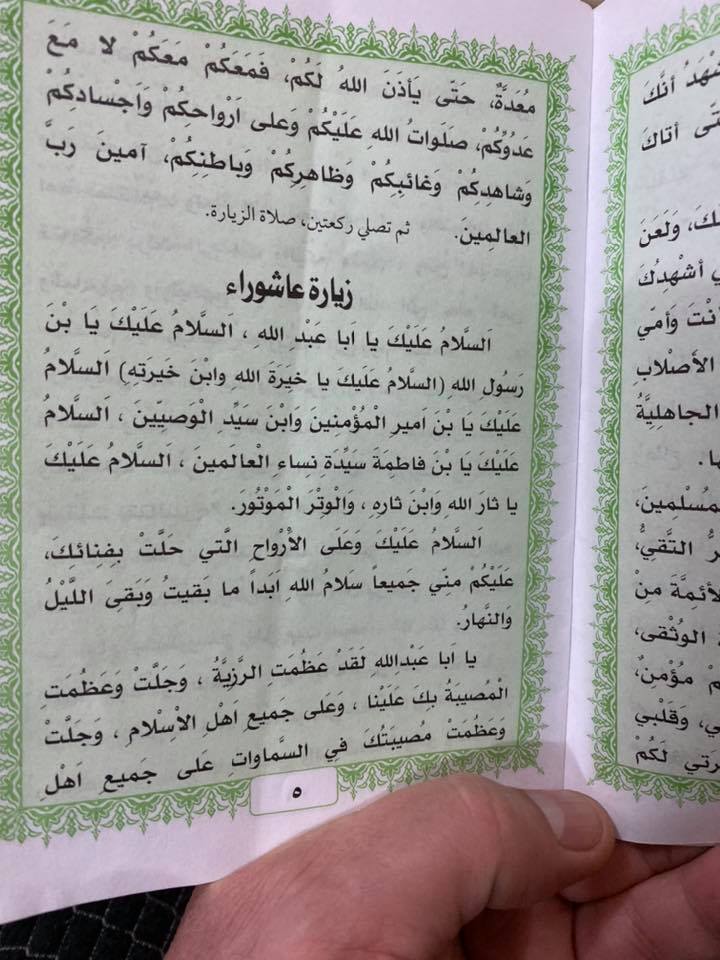 مُعَدَّةٌ، حَتّى يَأذَنَ اللهُ لَكُمْ، فَمَعَكُمْ مَعَكُمْ لا مَعَ
عَدُوِّكُمْ، صَلَواتُ اللهِ عَلَيْكُمْ وَعَلى اَرْواحِكُمْ وَاَجْسادِكُمْ
وَشاهِدِكُمْ وَغائِبِكُمْ وَظاهِرِكُمْ وَباطِنِكُمْ، آمينَ رَبَّ
العالِمينَ. ثم تصلي ركعتين، صلاة الزيارة.
زيارة عاشوراء
اَلسَّلامُ عَلَيْكَ يا اَبا عَبْدِ اللهِ ، اَلسَّلامُ عَلَيْكَ يا بْنَ
رَسُولِ اللهِ (السَّلامُ عَلَيكَ يا خِيَرَةَ الله وابْنَ خَيرَتهِ) اَلسَّلامُ
عَلَيْكَ يا بْنَ اَميرِ الْمُؤْمنينَ وَابْنَ سَيِّدِ الْوَصِيّينَ ، اَلسَّلامُ
عَلَيْكَ يا بْنَ فاطِمَةَ سَيِّدَةِ نِساءِ الْعالَمينَ ، اَلسَّلامُ عَلَيْكَ
يا ثارَ اللهِ وَابْنَ ثارِهِ ، وَالْوِتْرَ الْمَوْتُورَ.
اَلسَّلامُ عَلَيْكَ وَعَلَى الْأرْواحِ الَّتي حَلَّتْ بِفِنائِكَ،
عَلَيْكُمْ مِنّي جَميعاً سَلامُ اللهِ اَبَداً ما بَقيتُ وَبَقىَ اللَّيْلُ
وَالنَّهارُ.
يا اَبا عَبْدِاللهِ لَقَدْ عَظُمَتِ الرَّزِيَّةُ ، وَجَلَّتْ وَعَظُمَتِ
الْمُصيبَةُ بِكَ عَلَيْنا ، وَعَلى جَميعِ اَهْلِ الْاِسْلامِ ، وَجَلَّتْ
وَعَظُمَتْ مُصيبَتُكَ فِي السَّماواتِ عَلى جَميعِ اَهْلِ
٥
أنَّكَ
أتاكَ
وَلَعَنَ
أشْهِدُكَ
وَأمّي
الأصْلابِ
الجاهِلِيَّةُ
التَّقِيُّ،
مِنْ
الوُثْقى،
مُؤْمِنٌ،
وَقَلْبي
لَكُمْ